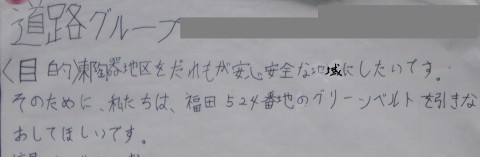 道路グループ
〈目的〉東陶器地区をだれもが安心安全な地域にしたいです。
そのために、私たちは、福田524番地のグリーンベルトを引きな
おしてほしいです。